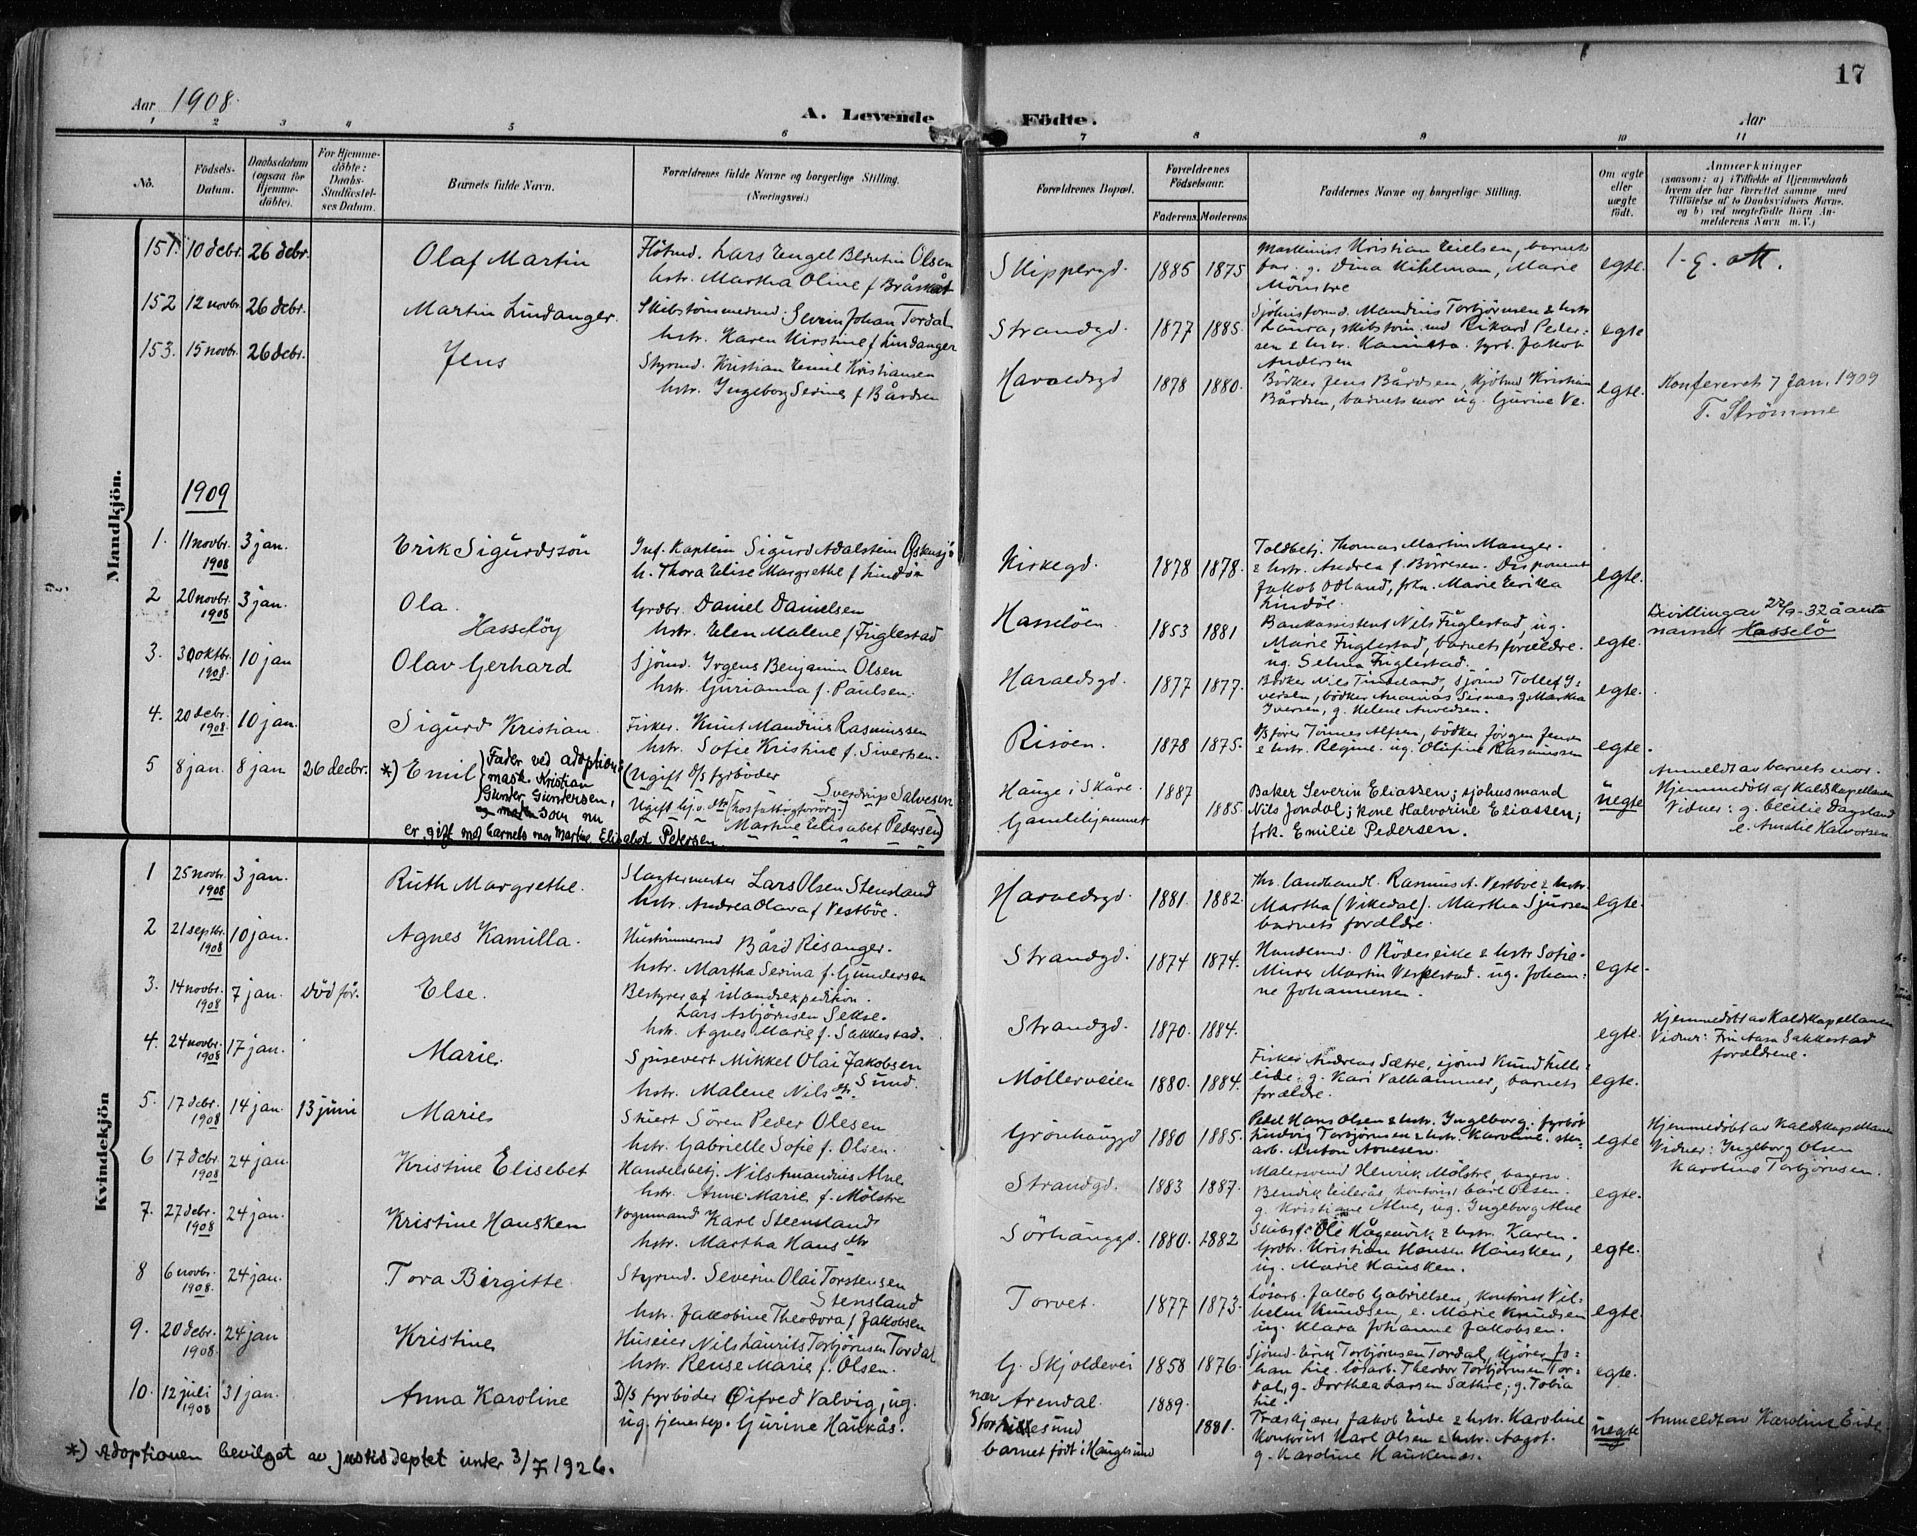 17
Aar 1908.
A. Levende Födte.
Aar
1 2 3 4 5 6 7 8 9 10 11
No.
Födsels-Datum.
Daabsdatum (ogsaa for Hjemme-döbte).
For Hjemme-döbte: Daabs-Stadfæstel-ses Datum.
Barnets fulde Navn.
Forældrenes fulde Navne og borgerlige Stilling.
(Næringsvei.)
Forældrenes Bopæl.
Forældrenes Födselsaar.
Faderens. Moderens.
Faddernes Navne og borgerlige Stilling.
Om ægte eller uægte födt.
Anmærkninger
(saasom: a) i Tilfælde af Hjemmedaab
hvem der har forrettet samme, med
Tilföielse af to Daabsvidners Navne,
og b) ved uægtefödte Börn An-
melderens Navn m. V.)
Mandkjön.
151. 10 debr. 26 debr. Olaf Martin
Lars Engel Olsen
hstr. Martha Oline f.
Skippergd. 1885 1875
Maskinist Kristian Eielsen, barnets
far, g. Dina Mihlman, Marie
Mönstre
egte.
152 12 novbr. 26 debr. Martin Lindanger.
Skibstömmermd. Severin Johan Tordal
hstr. Karen Kirstine f. Lindanger
Strandgd. 1877 1885.
Mandius Torbjörnsen & hstr
Laura, skibstöm.md Rikard Peder-
sen & hstr. fyrb. Jakob
Andersen
egte
153. 15 novbr. 26 debr. Jens
Styrmd. Kristian Emil Kristiansen
hstr. Ingeborg Serine f. Bårdsen
Haraldsgd 1878 1880.
Bödker Jens Bårdsen, Kristian
Bårdsen, barnets mor ug. Gurine
egte.
Konfereret 7 Jan. 1909
T. Strömme
1909
1. 11 novbr. 1908 3 jan. Erik Sigurdssön
Inf. Kaptein Sigurd Adalstein
h. Thora Elise Margrethe f. Lindöe
Kirkegd. 1878 1878.
Toldbetj. Thomas Martin Manger.
& hstr. Andrea f. Börresen. Disponent
Jakob Odland, frkn. Marie Erikka
Lindöe.
egte.
2 20 novbr. 1908 3 jan. Ola.
Hasselöy
Grdbr. Daniel Danielsen
hstr. Elen Malene f. Fuglestad
Hasselöen 1853 1881
Bankassistent Nils Fuglestad, ug.
Marie Fuglestad, barnets forældre.
ug. Selma Fuglestad.
egte.
Bevilling av 22/9-32 å anta
navnet Hasselö
3. 30 oktbr. 1908. 10 jan Olav Gerhard
Sjömd. Yrgens Benjamin Olsen
hstr. Gurianna f. Paulsen.
Haraldsgd. 1877 1877.
Bödker Nils Tindeland, sjömd Tollef I-
versen, bödker Ananias Sirnes g. Martha
Iversen, g. Helene Arvedsen.
egte.
4. 20 debr. 1908 10 jan. Sigurd Kristian.
Fisker. Knut Mandius Rasmussen
hstr. Sofie Kristine f. Sivertsen.
Risöen. 1878 1875.
Tönnes Alfsen, bödker Jörgen Jensen
& hstr. Regine. ug. Olufine Rasmussen
egte.
5 8 jan. 8 jan 26 decbr. *) Emil
Fader ved adoption:
mask. Kristian
Gunder Gundersen,
som nu
er gift med barnets mor Martine Elisabet Pedersen.
(Ugift d/s fyrböder
Sverdrup Salvesen
Ugift
Martine Elisabet Pedersen)
Hauge i Skåre 1887
Gamlehjemmet 1885
Baker Severin Eliassen; sjöhusmand
Nils Jondal; kone Halvorine Eliassen;
frk. Emilie Pedersen.
uegte
Anmeldt av barnets mor.
Hjemmedöbt af Kaldskapellanen
Vidner: g. Cecilie Dagsland
e. Amalie Halvorsen
Kvindekjön
1 25 novbr. 1908 3 jan. Ruth Margrethe.
Slagtermester Lars Olsen Stensland
hstr. Andrea Olava f. Vestböe.
Haraldsgd. 1881 1882.
Fhv. landhandl. Rasmus A. Vestböe & hstr.
Martha (Vikedal). Martha Sjursen
barnets forældre.
egte.
2 21 septbr. 1908 10 jan. Agnes Kamilla.
Hustömmermd Bård Risanger.
hstr. Martha Serina f. Gundersen
Strandgd. 1874 1874.
Handlsmd. O Rödeseike & hstr Sofie
Murer Martin ug. Johan-
ne Johannessen.
egte.
3. 14 novbr. 1908 7 jan. Död för. Else.
Bestyrer af islandsexpedition.
Lars Asbjörnsen Sekse.
hstr. Agnes Marie f. Sakkestad.
Strandgd. 1870. 1884.
egte.
Hjemmedöbt av Kaldskapellanen
Vidner: Fru Aasa Sakkestad
forældrene.
4. 24 novbr. 1908 17 jan. Marie.
Spisevert Mikkel Olai Jakobsen
Sund.
hstr. Malene Nilsdtr.
Möllerveien 1880. 1884.
Fisker Andreas Sætre, sjömd Knud Lille-
eide. g. Kari Valhammer, barnets
forældre.
egte.
5. 17 debr. 1908 14 jan. 13 juni Marie
Stuert Sören Peder Olesen
hstr. Gabrielle Sofie f. Olsen.
Grönhauggd 1880 1885.
Pedel Hans Olsen & hstr. Ingleborg; fyrböt
Ludvig Torbjörnsen & hstr. Karoline. sten-
arb. Anton Arnesen.
egte
Hjemmedöbt av Kaldskapellanen
Vidner: Ingeborg Olsen
Karoline Torbjörnsen.
6 17 debr. 1908 24 jan. Kristine Elisebet
Handelsbetj. Nils Amandius Alne
hstr. Anne Marie f. Mölstre
Strandgd. 1883 1887.
Malersvend Henrik Mölstre,
Bendik kontorist Carl Olsen.
g. Kristiane Alne, ug. Ingeborg Alne
egte.
7. 27 debr. 1908 24 jan. Kristine Hausken
Vognmand Karl Steensland
hstr. Martha Hansdtr
Sörhauggd. 1880. 1882
Ole Hågenvik & hstr. Karen.
Grdbr. Kristian Hansen Hausken,
ug. Marie Hausken.
egte.
8 6 novbr. 1908. 24 jan. Tora Birgitte.
Styrmd. Severin Olai Torstensen
Stensland
hstr. Jakobine Theodora f. Jakobsen
Torvet. 1877 1873.
Lösarb. Jakob Gabrielsen, kontorist Vil-
helm Knudsen, e. Marie Knudsen
ug. Klara Johanne Jakobsen.
egte.
9. 20 debr. 1908. 24 jan Kristine
Huseier Nils Laurits Torbjörnsen Tordal
hstr. Rense Marie f. Olsen.
G. Skjoldevei 1858 1876.
Sjömd. Erik Torbjörnsen Tordal, kjörer Jo-
han lie. lösarb. Theodor Torbjörnsen Tor-
dal, g. Dorthea Larsen Sæthre; g. Tobia
lie.
egte.
10. 12 juli 1908 31 jan. Anna Karoline
D/S fyrböder Öifred Valvig, ug.
ug. tjenestep. Gurine Haukås.
nær Arendal. 1889.
1881.
barnet födt i Haugesund
Træskjærer Jakob Eide & hstr. Karoline
Kontorist Karl Olsen & hstr. Aagot.
g. Karoline Haukenes.
uegte
Anmeldt av Karoline Eide
*) Adoptionen bevilget av justisdeptet under 3/7 1926.